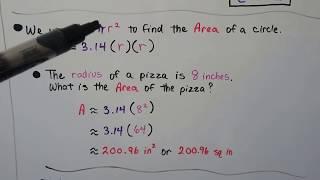 We r² to find the Area of a circle.
≈ 3.14(r)(r)
The radius of a pizza is 8 inches.
What is the Area of the pizza?
A ≈ 3.14(8²)
≈ 3.14(64)
≈ 200.96 in² or 200.96 sq in